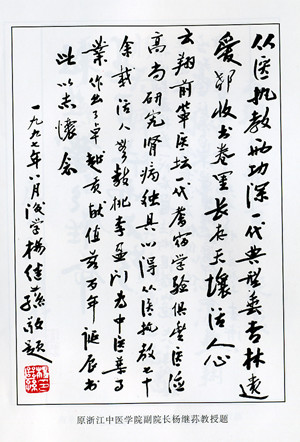 从医执教功深一代典型垂杏林遗
爱都收书卷里长存天壤活人心
云翔前辈医坛一代耆宿学验俱丰医德
高尚研究肾病独具心得从医执教七十
余载活人无数桃李盈门为中医药事
业作出了卓越贡献值百年诞辰书
此以志怀念
一九九七年八月后学杨继荪敬题
原浙江中医学院副院长杨继荪教授题